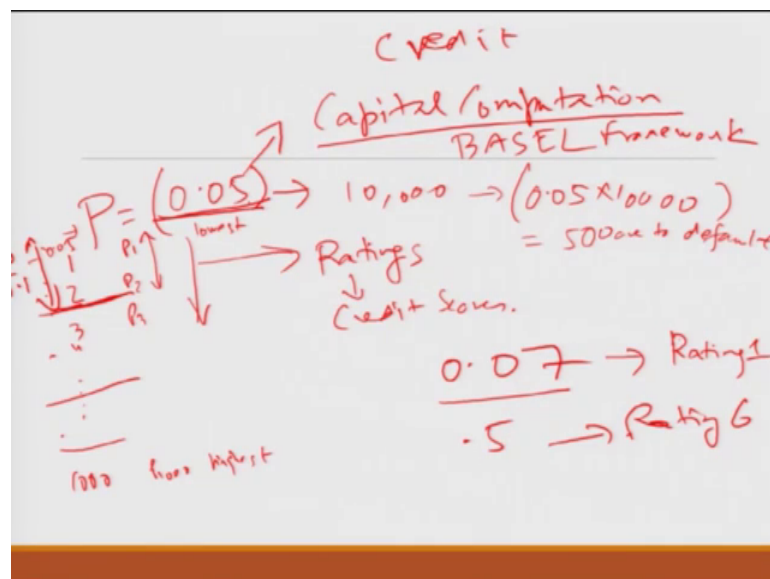 Credit
Capital Computation
BASEL framework
P = (0.05) → 10,000 → (0.05 X 10000)
lowest
= 500 are to default
1 P1
2 P2
3 P3
Ratings
Credit Scores.
0.07 → Rating 1
.5 → Rating 6
1000 highest